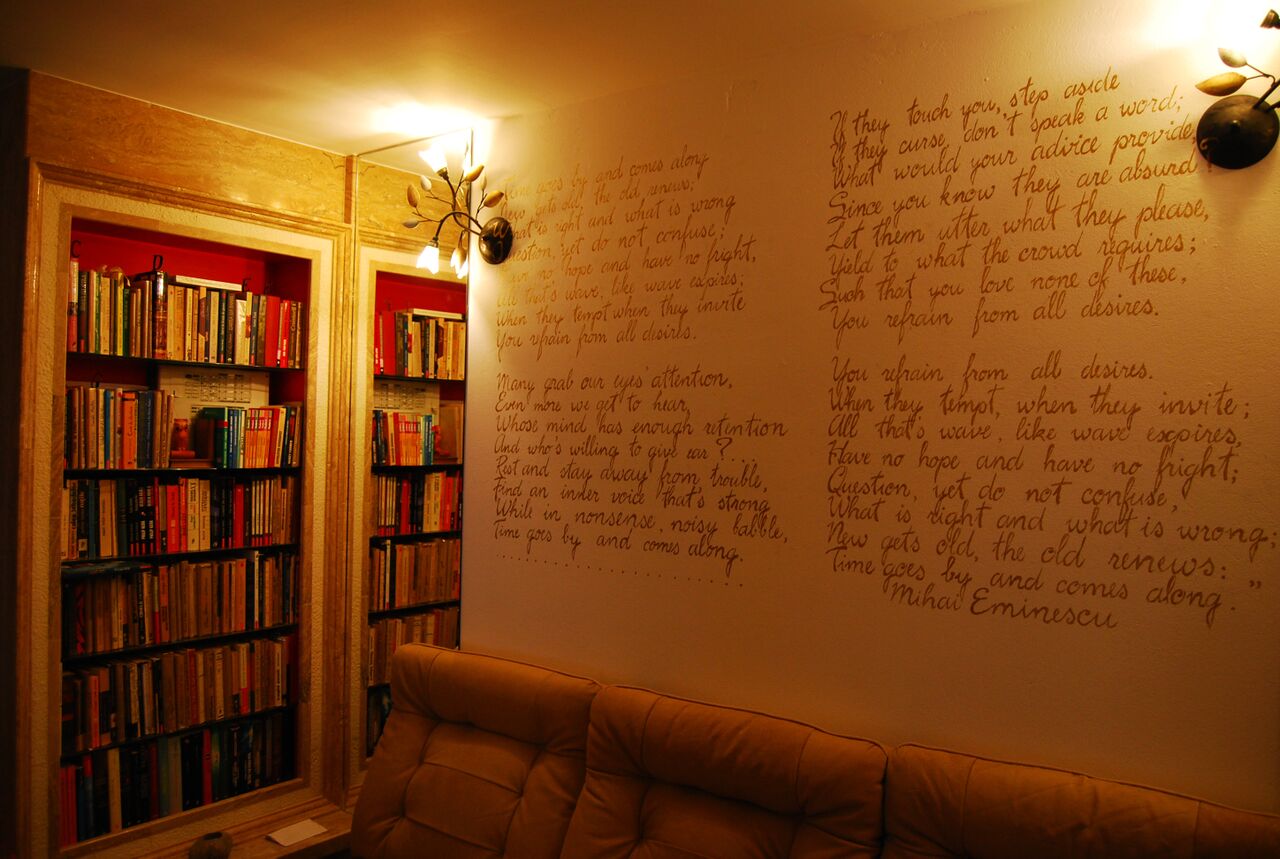 Time goes by and comes along
New gets old, the old renews;
What is right and what is wrong
Question, yet do not confuse;
Have no hope and have no fright,
All that's wave, like wave expires;
When they tempt when they invite
You refrain from all desires.
Many grab our eyes' attention,
Even more we get to hear,
Whose mind has enough retention
And who's willing to give ear?...
Rest and stay away from trouble,
Find an inner voice that's strong
While in nonsense, noisy babble,
Time goes by and comes along.
..........................
If they touch you, step aside
If they curse don't speak a word;
What would your advice provide,
Since you know they are absurd?
Let them utter what they please,
Yield to what the crowd requires;
Such that you love none of these,
You refrain from all desires.
You refrain from all desires.
When they tempt, when they invite;
All that's wave, like wave expires,
Have no hope and have no fright;
Question, yet do not confuse,
What is right and what is wrong;
New gets old, the old renews:
Time goes by and comes along."
Mihai Eminescu
C
D